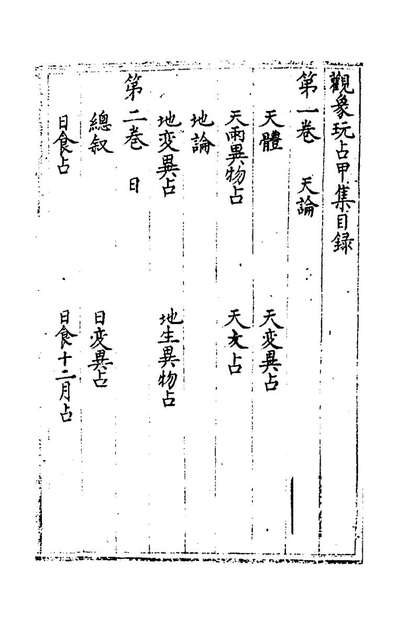 觀象玩占甲集目録
第一卷 天論
天體 天変異占
天雨異物占 天火占
地論
地変異占 地生異物占
第二卷 日
總叙 日変異占
日食占 日食十二月占